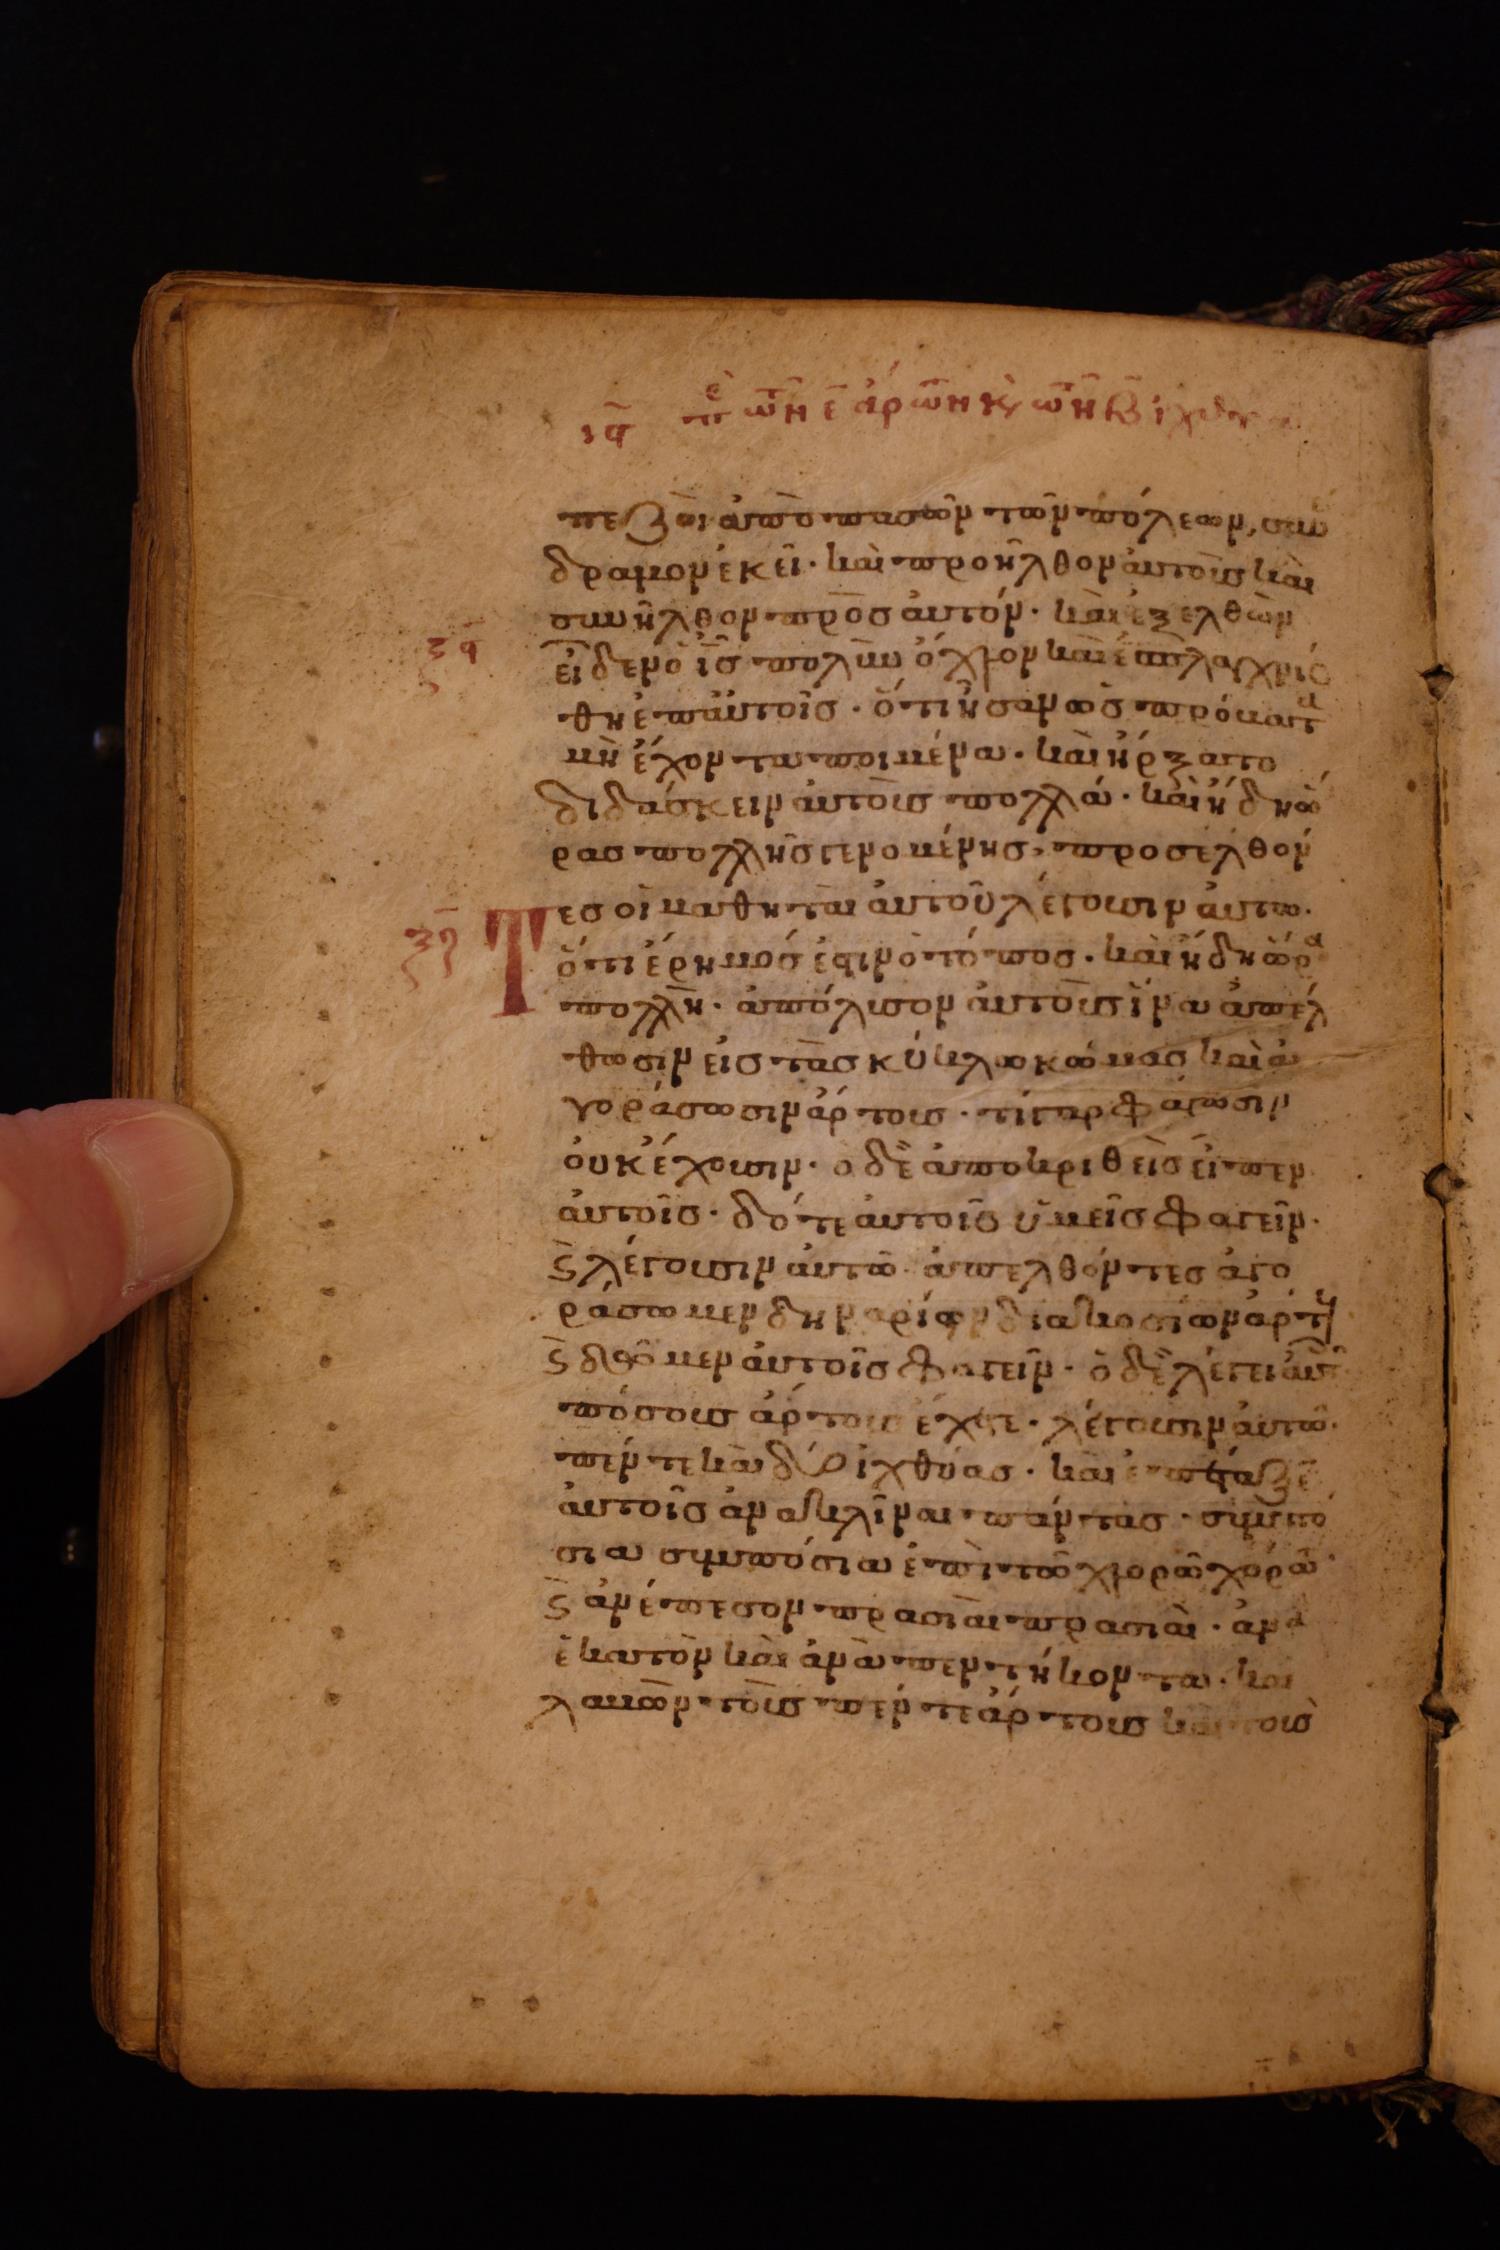 ιϛ̄ π̀ε τω̄ν ε̄ ἄρτων κ̀ τῶν β̄ ἰχθύων
πεζοὶ ἀπὸ πασῶν τῶν πόλεων, συν
δραμον ἐκεῖ· καὶ προῆλθον αὐτοὺς καὶ
συνῆλθον πρὸσ αὐτόν· καὶ ἐξελθὼν
ξα εἶδεν ὁ ἰ̅σ̅ πολὺν ὄχλον καὶ ἐσπλαγχνίσ
θη ἐπ αὐτοῖσ· ὅτι ἦσαν ὡσ πρόβατα
μὴ ἔχοντα ποιμένα· καὶ ἤρξατο
διδάσκειν αὐτοὺσ πολλά· καὶ ἤδη ὥ
ρασ πολλῆσ γενομένησ, προσελθόν
τεσ οἱ μαθηταὶ αὐτοῦ λέγουσιν αὐτω·
ὅτι ἔρημόσ ἐστιν ὁ τόποσ· καὶ ἤδη ὥρα
πολλὴ· ἀπόλυσον αὐτοὺσ ἵνα ἀπελ
θωσιν εἰσ τὰσ κύκλω κώμασ καὶ ἀ
γοράσωσιν ἄρτουσ· τί γαρ φάγωσιν
οὐκ ἔχουσιν· ὁ δὲ ἀποκριθεὶσ εἶπεν
αὐτοῖσ· δότε αὐτοῖσ ὑμεῖσ φαγεῖν·
ϛ̀ λέγουσιν αὐτῶ· ἀπελθόντεσ ἀγο
ράσωμεν δηναρίων διακοσίων ἄρτους
ϛ̀ δῶμεν αὐτοῖσ φαγεῖν· ὁ δὲ λέγει αὐτοῖσ
πόσουσ ἄρτουσ ἔχετε· λέγουσιν αὐτῶ·
πέντε καὶ δύο ἰχθύασ· καὶ ἐπέταξεν
αὐτοῖσ ἀνακλῖναι πάντασ· συμπό
σια συμπόσια ἐπὶ τῶ χλορῶ χόρτω·
ϛ̀ ἀνέπεσον πρασιαὶ πρασιαὶ· ἀνὰ
ἑκατὸν καὶ ἀνὰ πεντήκοντα· καὶ
λαβὼν τοὺσ πέντε ἄρτουσ καὶ τοὺσ